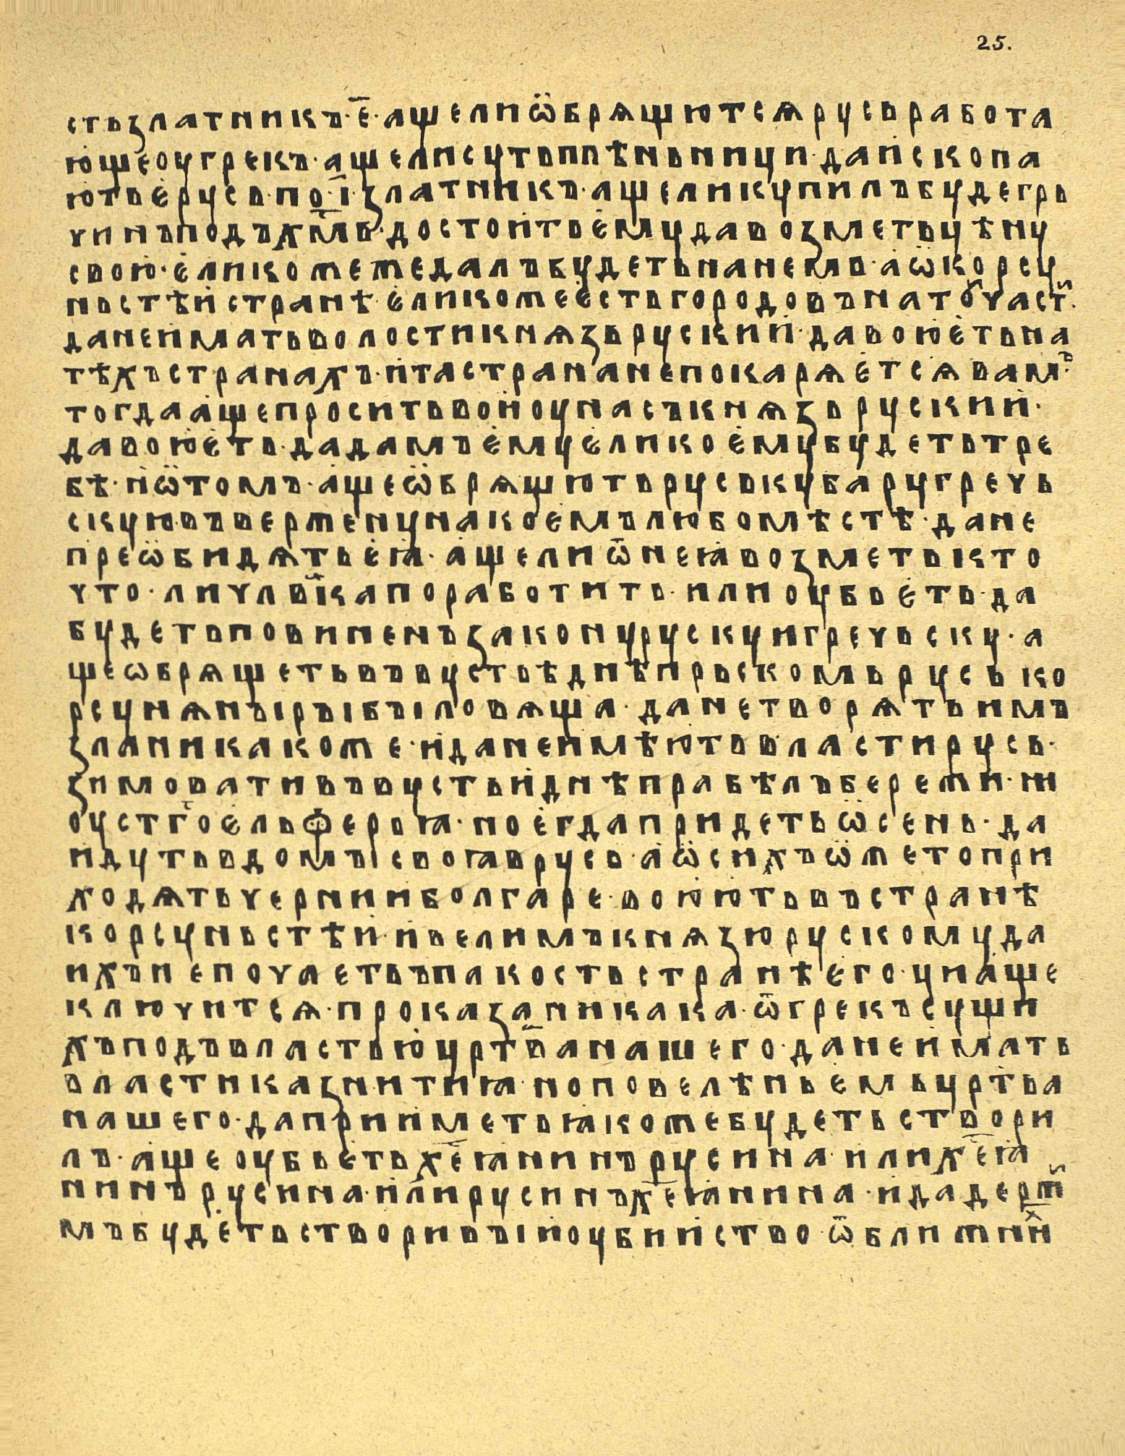 25.
стьзлатникъ·е҃·ащелиѡбрящютсярусьработа
ющеоугрекъ·ащелисутьплѣньници·даископа
ютьерусьпо·і҃·златникъ·ащеликупилъбудегрь
чинъподъхмⷭ҇ь·достоитьемудавозметьцѣну
свою·еликожежедалъбудетьнанемь·аѡкорсу
ньстѣистранѣ·еликожеестьгородовънатоꙋчастⷭ҇и·
данеиматьволостикнязьрускии·давоюетьна
тѣхъстранахъ·итастрананепокаряетсявамⷮ·
тогдаащепроситьвоиоунасъкнязьрускии·
давоюеть·дадамъемуеликоемубудетьтре
бѣ·иѡтомъ·ащеѡбрящютьруськубаругречь
скуювъверженунакоемълюбомѣстѣ·дане
преѡбидятьеꙗ·ащелиѿнеꙗвозметькто
что·личлвⷭ҇ѣкапоработить·илиоубьеть·да
будетьповиненъзаконурускуигречьску·а
щеѡбрящетьвъвустьѣднѣпрьскомьрусько
рсунянꙑрꙑбꙑловяща·данетворятьимъ
зланикакоже·иданеимѣютьвластирусь·
зимовативъвустьиднѣпрабѣлъбережи·ни
оустгⷪ҇оельферьꙗ·ноегдапридетьѡсень·да
идутьвдомꙑсвоꙗврусь·аѡсихъѡжетопри
ходятьчерниииболгаре·воюютьвъстранѣ
корсуньстѣи·ивелимъкнязюрускомуда
ихънепочаетьпакостьстранѣего·циаще
ключится·проказаникака·ѿгрекъсущи
хъподъвластьюцртⷭ҇ванашего·данеимать
властиказнитиꙗ·ноповелѣньемьцртⷭ҇ва
нашего·даприиметьꙗкожебудетьствори
лъ·ащеоубьетьхⷭ҇еꙗнинърусина·илихⷭ҇еꙗ
нинърусина·илирусинъхⷭ҇еꙗнина·идадержⷩ҇и
мъбудетьстворивꙑиоубииство·ѿближнихⷯ